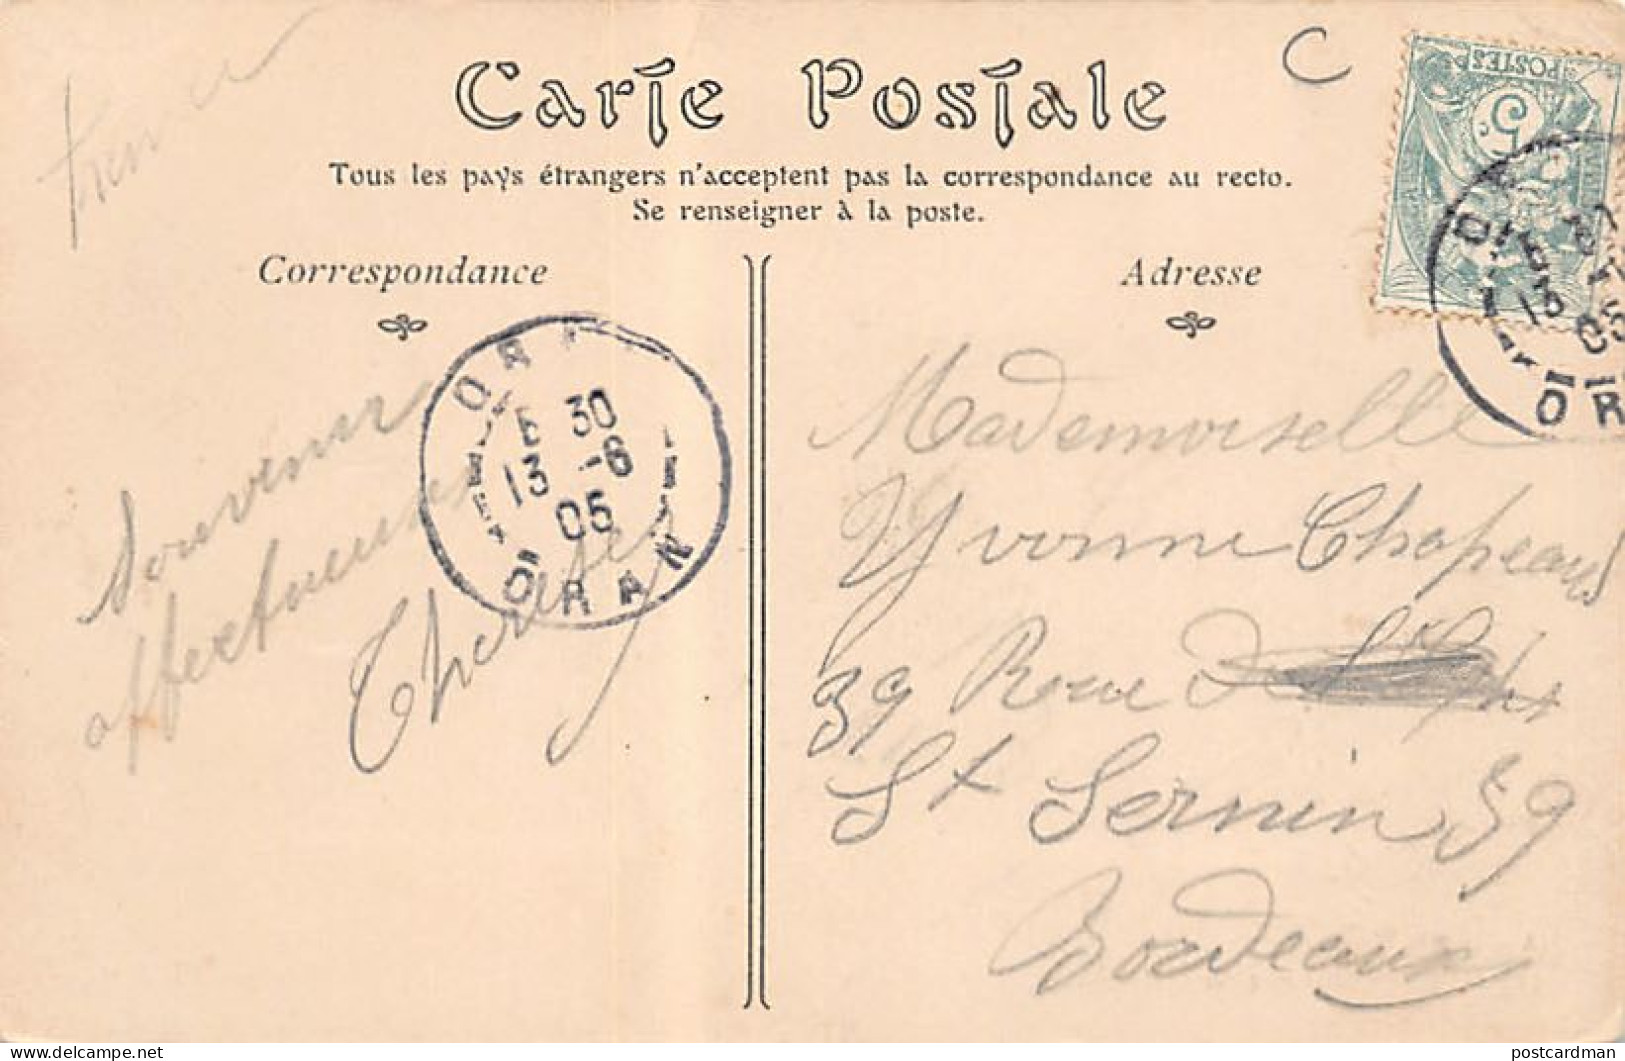 Carte Postale
C
POSTES
5c
Tous les pays étrangers n'acceptent pas la correspondance au recto.
Se renseigner à la poste.
Correspondance
Adresse
ORAN
30
13 -6
05
ORAN
Souvenir
affectueux
Therese
13
05
Mademoiselle
Yvonne Chapeaud
39 Rue
St Sernin 59
Bordeaux
delcampe.net
postcardman